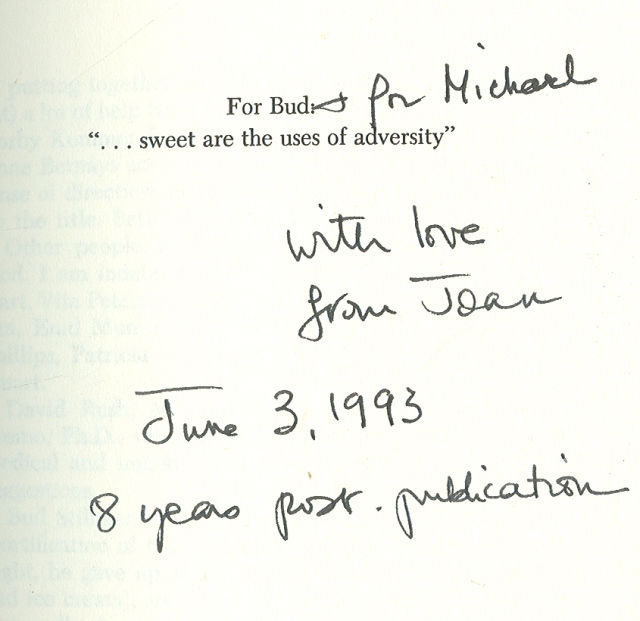 For Bud: for Michael
"... sweet are the uses of adversity"
with love
from Joan
June 3, 1993
8 years post. publication